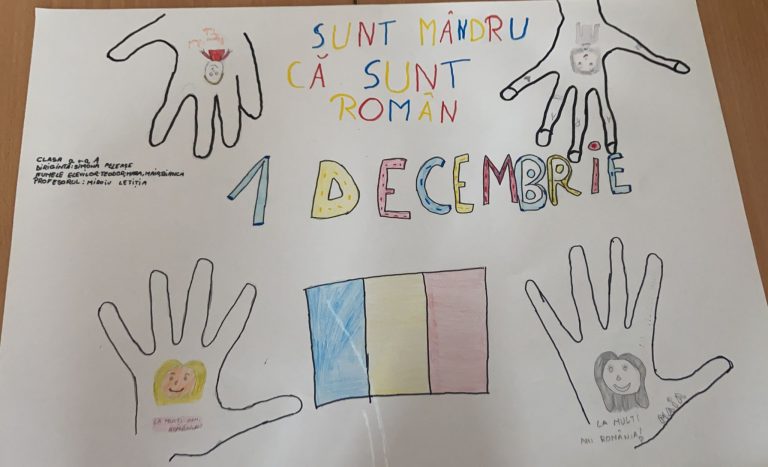 SUNT MÂNDRU
CĂ SUNT
ROMÂN
CLASA a v-a 1
DIRIGINTĂ: SIMONA
NUMELE ELEVILOR: TEODOR, MARA, MAIA, BIANCA
PROFESORUL: MIROIU LETIȚIA
1 DECEMBRIE
LA MULȚI ANI,
ROMÂNIA!
LA MULȚI
ANI ROMÂNIA!